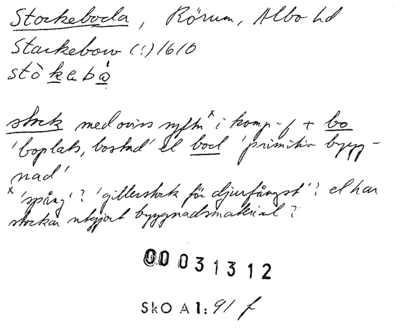 Stockeboda, Rörum, Albo hd
Stackebow (!) 1610
stò kabà
stock med oviss syftnx i komp-f + bo
'boplats, bostad' el bod 'primitiv bygg-
nad'
x 'spång'? 'gillerstock för djurfångst'? el har
stockar utgjort byggnadsmaterial?
00031312
SkO A1: 91 f